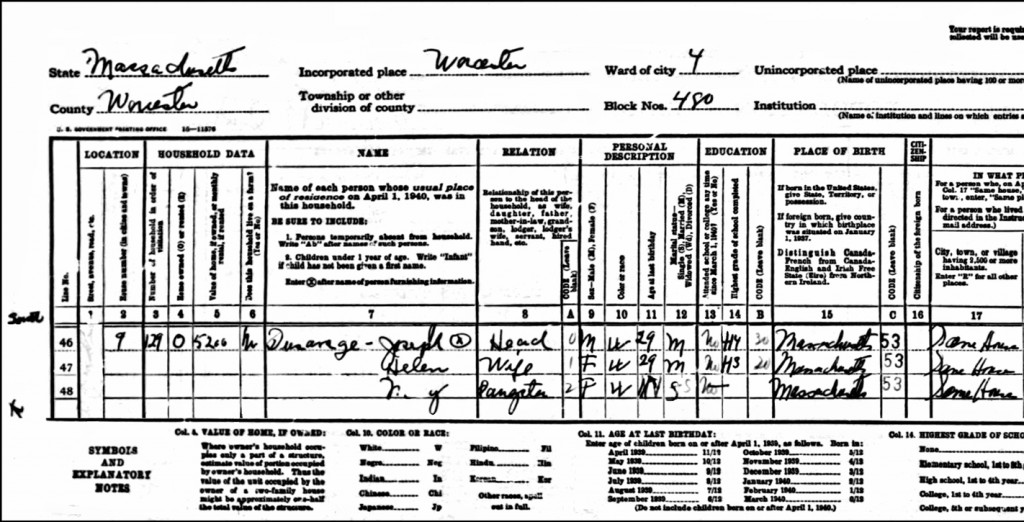 Your report is requir
collected will be use
State Massachusetts Incorporated place Worcester Ward of city 4 Unincorporated place
(Name of unincorporated place having 100 or more
County Worcester Township or other division of county Block Nos. 480 Institution
(Name of institution and lines on which entries
U. S. GOVERNMENT PRINTING OFFICE 16—11576
LOCATION HOUSEHOLD DATA NAME RELATION PERSONAL DESCRIPTION EDUCATION PLACE OF BIRTH CITIZENSHIP IN WHAT PL
Line No.
Street, avenue, road, etc.
House number (in cities and towns)
Number of household in order of visitation
Home owned (O) or rented (R)
Value of home, if owned, or monthly rental, if rented
Does this household live on a farm? (Yes or No)
Name of each person whose usual place of residence on April 1, 1940, was in this household.
BE SURE TO INCLUDE:
1. Persons temporarily absent from household. Write "Ab" after names of such persons.
2. Children under 1 year of age. Write "Infant" if child has not been given a first name.
Enter Ⓧ after name of person furnishing information.
Relationship of this person to the head of the household, as wife, daughter, father, mother-in-law, grandson, lodger, lodger's wife, servant, hired hand, etc.
CODE (Leave blank)
Sex—Male (M), Female (F)
Color or race
Age at last birthday
Marital status— Single (S), Married (M), Widowed (Wd), Divorced (D)
Attended school or college any time since March 1, 1940? (Yes or No)
Highest grade of school completed
CODE (Leave blank)
If born in the United States, give State, Territory, or possession.
If foreign born, give country in which birthplace was situated on January 1, 1937.
Distinguish Canada-French from Canada-English and Irish Free State (Eire) from Northern Ireland.
CODE (Leave blank)
Citizenship of the foreign born
For a person who, on Ap
Col. 17 "Same house,"
town, enter, "Same pl
For a person who lived
directed in the Instruc
mail address.)
City, town, or village having 2,500 or more inhabitants.
Enter "R" for all other places.
1 2 3 4 5 6 7 8 A 9 10 11 12 13 14 B 15 C 16 17
South
46 9 129 O 5200 No Joseph Ⓧ Head 0 M W 29 M No H4 30 Massachusetts 53 Same House
47 Helen Wife 1 F W 29 M No H3 20 Massachusetts 53 Same House
48 2 F W S No Massachusetts 53 Same House
SYMBOLS AND EXPLANATORY NOTES
Col. 5. VALUE OF HOME, IF OWNED:
Where owner's household occupies only a part of a structure, estimate value of portion occupied by owner's household. Thus the value of the unit occupied by the owner of a two-family house might be approximately one-half the total value of the structure.
Col. 10. COLOR OR RACE:
White W Filipino Fil
Negro Neg Hindu Hin
Indian In Korean Kor
Chinese Chi Other races, spell out in full.
Japanese Jp
Col. 11. AGE AT LAST BIRTHDAY:
Enter age of children born on or after April 1, 1939, as follows. Born in:
April 1939 11/12 October 1939 5/12
May 1939 10/12 November 1939 4/12
June 1939 9/12 December 1939 3/12
July 1939 8/12 January 1940 2/12
August 1939 7/12 February 1940 1/12
September 1939 6/12 March 1940 0/12
(Do not include children born on or after April 1, 1940.)
Col. 14. HIGHEST GRADE OF SCHO
None
Elementary school, 1st to 8th
High school, 1st to 4th year
College, 1st to 4th year
College, 5th or subsequent y